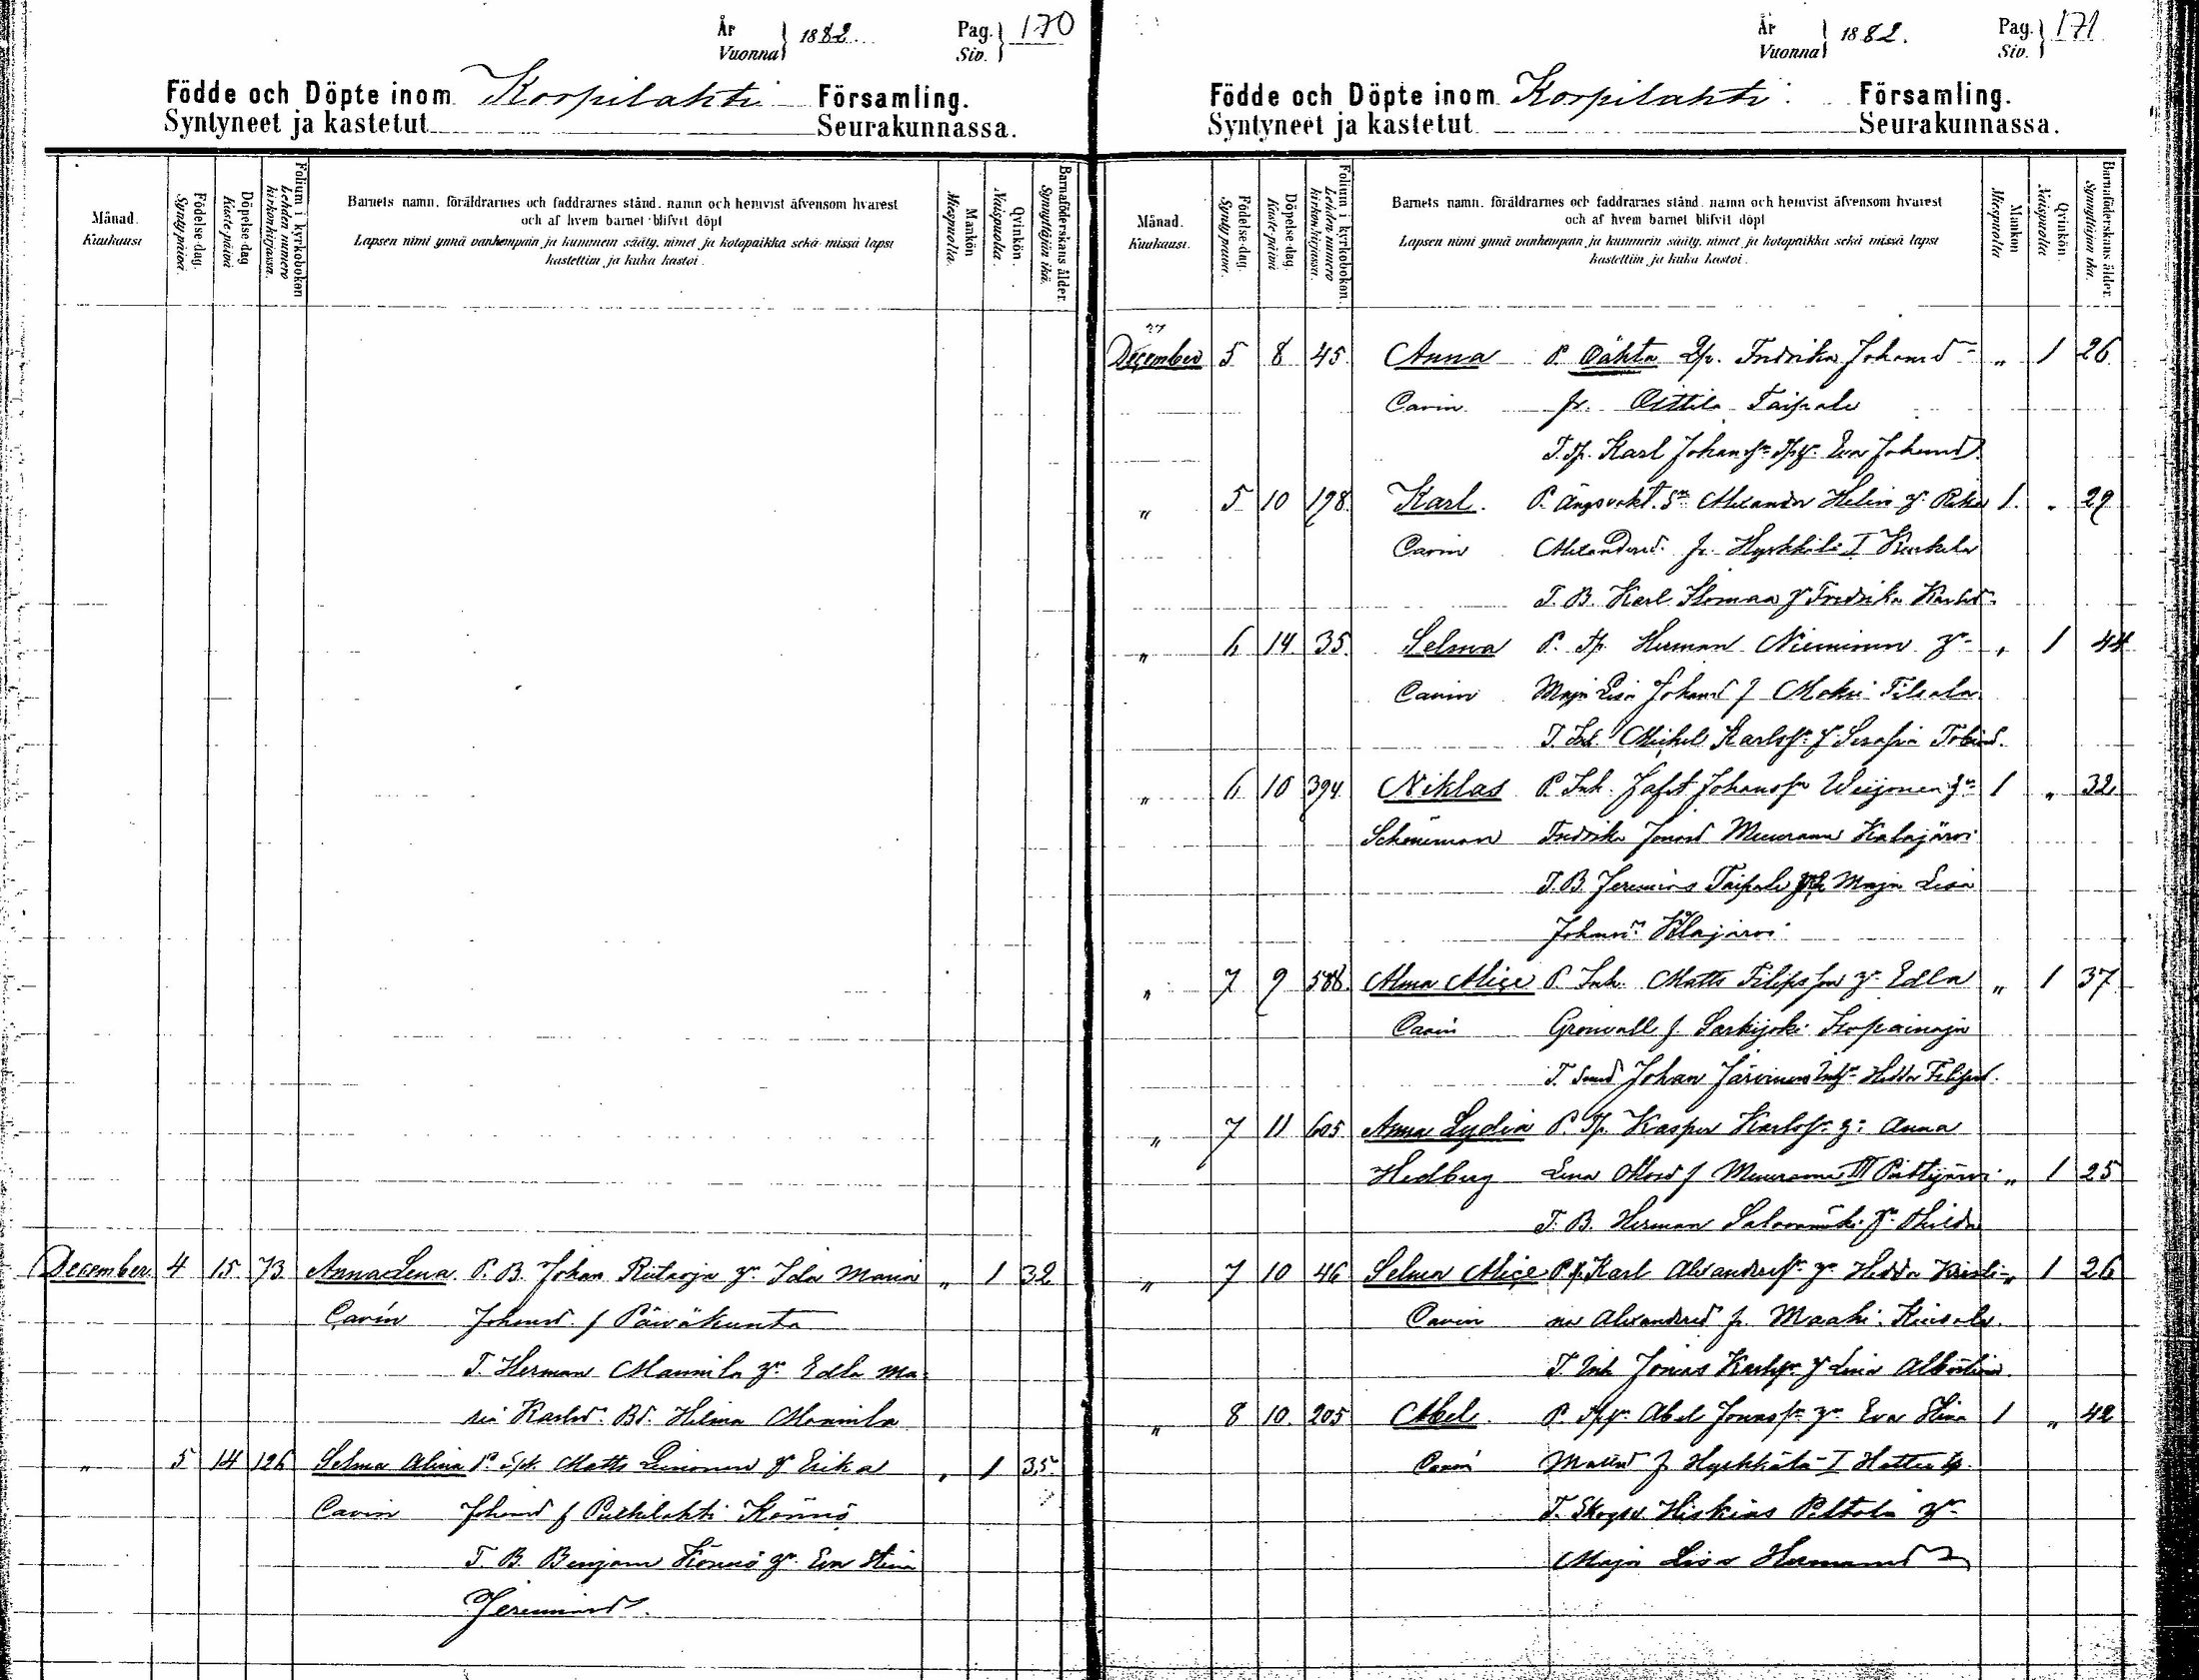 År Vuonna } 1882. Pag. Siv. } 170
Födde och Döpte inom Korpilahti Församling.
Syntyneet ja kastetut Seurakunnassa.
Månad. Kuukausi
Födelse-dag. Synty-päivä.
Döpelse-dag Kaste-päivä
Folium i kyrkoboken Lehden numero kirkonkirjassa.
Barnets namn, föräldrarnes och faddrarnes stånd, namn och hemvist äfvensom hvarest
och af hvem barnet blifvit döpt
Lapsen nimi ynnä vanhempain ja kummein sääty, nimet ja kotopaikka sekä missä lapsi
kastettiin ja kuka kastoi.
Mankön Miespuolia.
Qvinkön. Naispuolia.
Barnaföderskans ålder. Synnyttäjän ikä.
December. 4 15 73 Anna Lena P. B. Johan Riitaoja hu Ida Maria " 1 32
Carin Johansd. f Päiväkunta
T. Herman Mannila hu Edla Ma-
ria Karlsd. Bd. Helma Mannila
" 5 14 126 Selma Alina P. Matts Leinonen hu Erika " 1 35
Carin Johansd f Putkilahti Könnö
T. B. Benjam Könnö hu Eva Stina
Jeremiasd.
År Vuonna } 1882. Pag. Siv. } 171
Födde och Döpte inom Korpilahti Församling.
Syntyneet ja kastetut Seurakunnassa.
Månad. Kuukausi.
Födelse-dag. Synty-päivä.
Döpelse-dag. Kaste-päivä
Folium i kyrkoboken. Lehden numero kirkonkirjassa.
Barnets namn, föräldrarnes och faddrarnes stånd, namn och hemvist äfvensom hvarest
och af hvem barnet blifvit döpt
Lapsen nimi ynnä vanhempain ja kummein sääty, nimet ja kotopaikka sekä missä lapsi
kastettiin ja kuka kastoi.
Mankön Miespuolia
Qvinkön. Naispuolia
Barnaföderskans ålder. Synnyttäjän ikä.
December 5 8 45. Anna P. Oähta Fredrika Johansd " 1 26
Carin fr. Oittila Taipale
T. Karl Johanss. Eva Johansd
" 5 10 198. Karl. P. Alexander Helin Rika 1. " 29
Carin Alexandersd. fr. Hyrkkälä I Kurkela
T. B. Karl Sloman Fredrika Karlsd.
" 6 14 35. Selma P. Herman Nieminen hu " 1 44
Carin Maja Lisa Johansd f Moksi Tilsala
T. Inh. Michel Karlss. Serafia Tobiasd.
" 6 10 394 Niklas P. Inh. Jafet Johansson Weijonen hu 1 " 32
Schöneman Fredrika Jonasd Muurame Kalajärvi
T. B. Jeremias Taipale Maja Lisa
Johansd. Kalajärvi
" 7 9 588. Alma Alice P. Inh. Matts Filipsson hu Edla " 1 37
Carin Gronvall f. Sarkijoki Isopainaja
T. Johan Järvinen Hedda Filipsd.
" 7 11 605 Anna Lydia P. Kasper Karlss. hu Anna
Hedberg Lena Ottosd f Muurame III Päitijärvi " 1 25
T. B. Herman Salomäki
" 7 10 46 Selma Alice P. Karl Alexanderss. hu Hedda Kristi- " 1 26
Carin na Alexandersd fr. Maaki Kiisala.
T. Inh Jonas Karlss. Lina Albertina.
" 8 10. 205 Abel. P. Abel Jonass. hu Eva Stina 1 " 42
Carin Mattsd f. Hyrkkälä I
T. Skogsv. Hiskias Peltola hu
Maja Lisa Hermansd